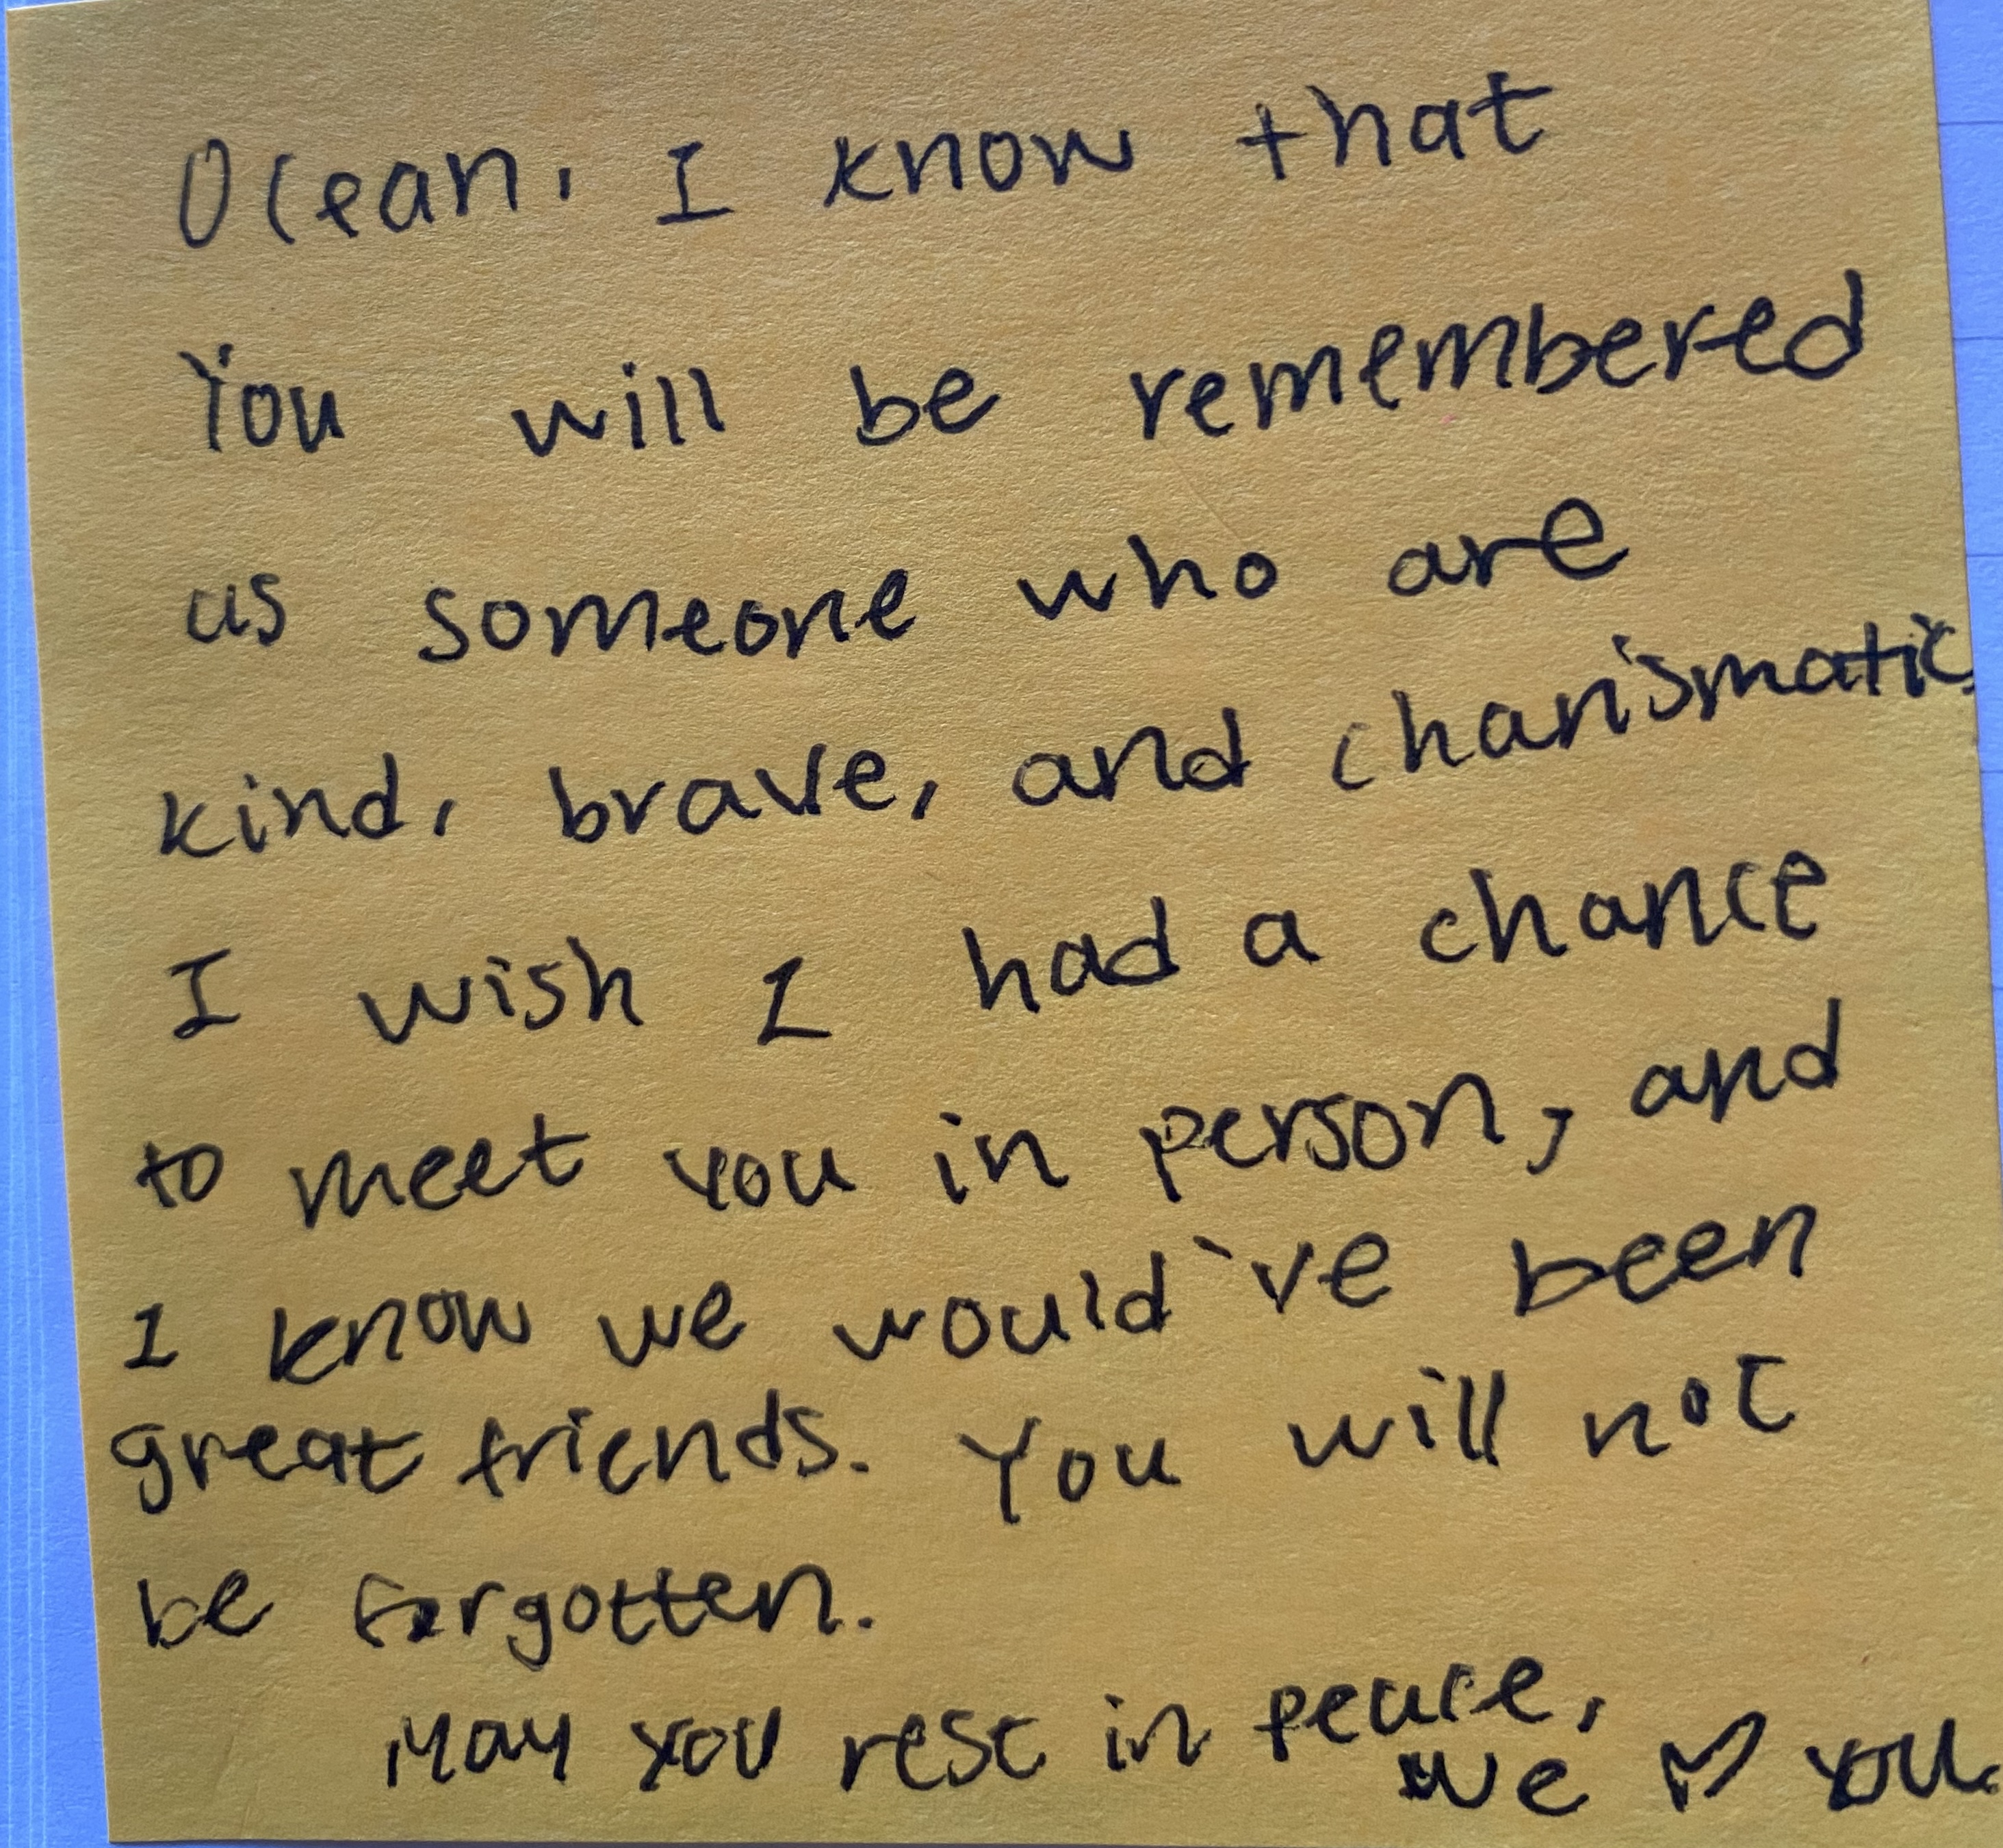 Ocean, I know that
You will be remembered
as someone who are
kind, brave, and charismatic.
I wish I had a chance
to meet you in person, and
I know we would've been
great friends. You will not
be forgotten.
May you rest in peace,
We ♡ you.